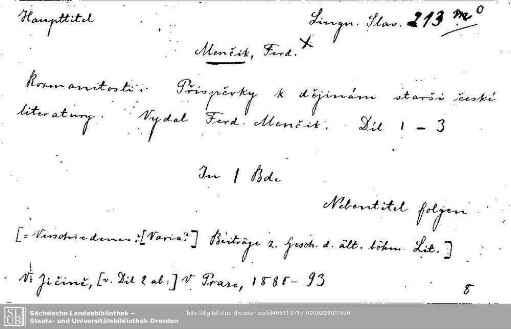 Haupttitel
Lingu. Slav. 213 mo
Menčik, Ferd. x
Rozmanitosti. Příspěvky k dějinám starší české
literatury. Vydal Ferd. Menčik. Díl 1 - 3
In 1 Bde
Nebentitel folgen
[= Verschiedenes: [Varia?] Beiträge z. Gesch. d. ält. böhm. Lit.]
V Jičíně, [v. Díl 2 ab:] V Praze, 1880 - 93
8
SLUB
Sächsische Landesbibliothek –
Staats- und Universitätsbibliothek Dresden